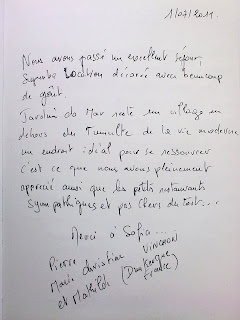 1/07/2011.
Nous avons passé un excellent séjour,
Superbe Location décoré avec beaucoup
de goût.
Jardim do Mar reste un village en
dehors du Tumulte de la vie moderne
un endroit idéal pour se ressourcer
c'est ce que nous avons pleinement
apprécié ainsi que les petits restaurants
Sympathiques et pas Chers du tout...
Merci à Sofia...
Pierre
Marie Christine VINCHON
et Mathilde (Dunkerque
France)